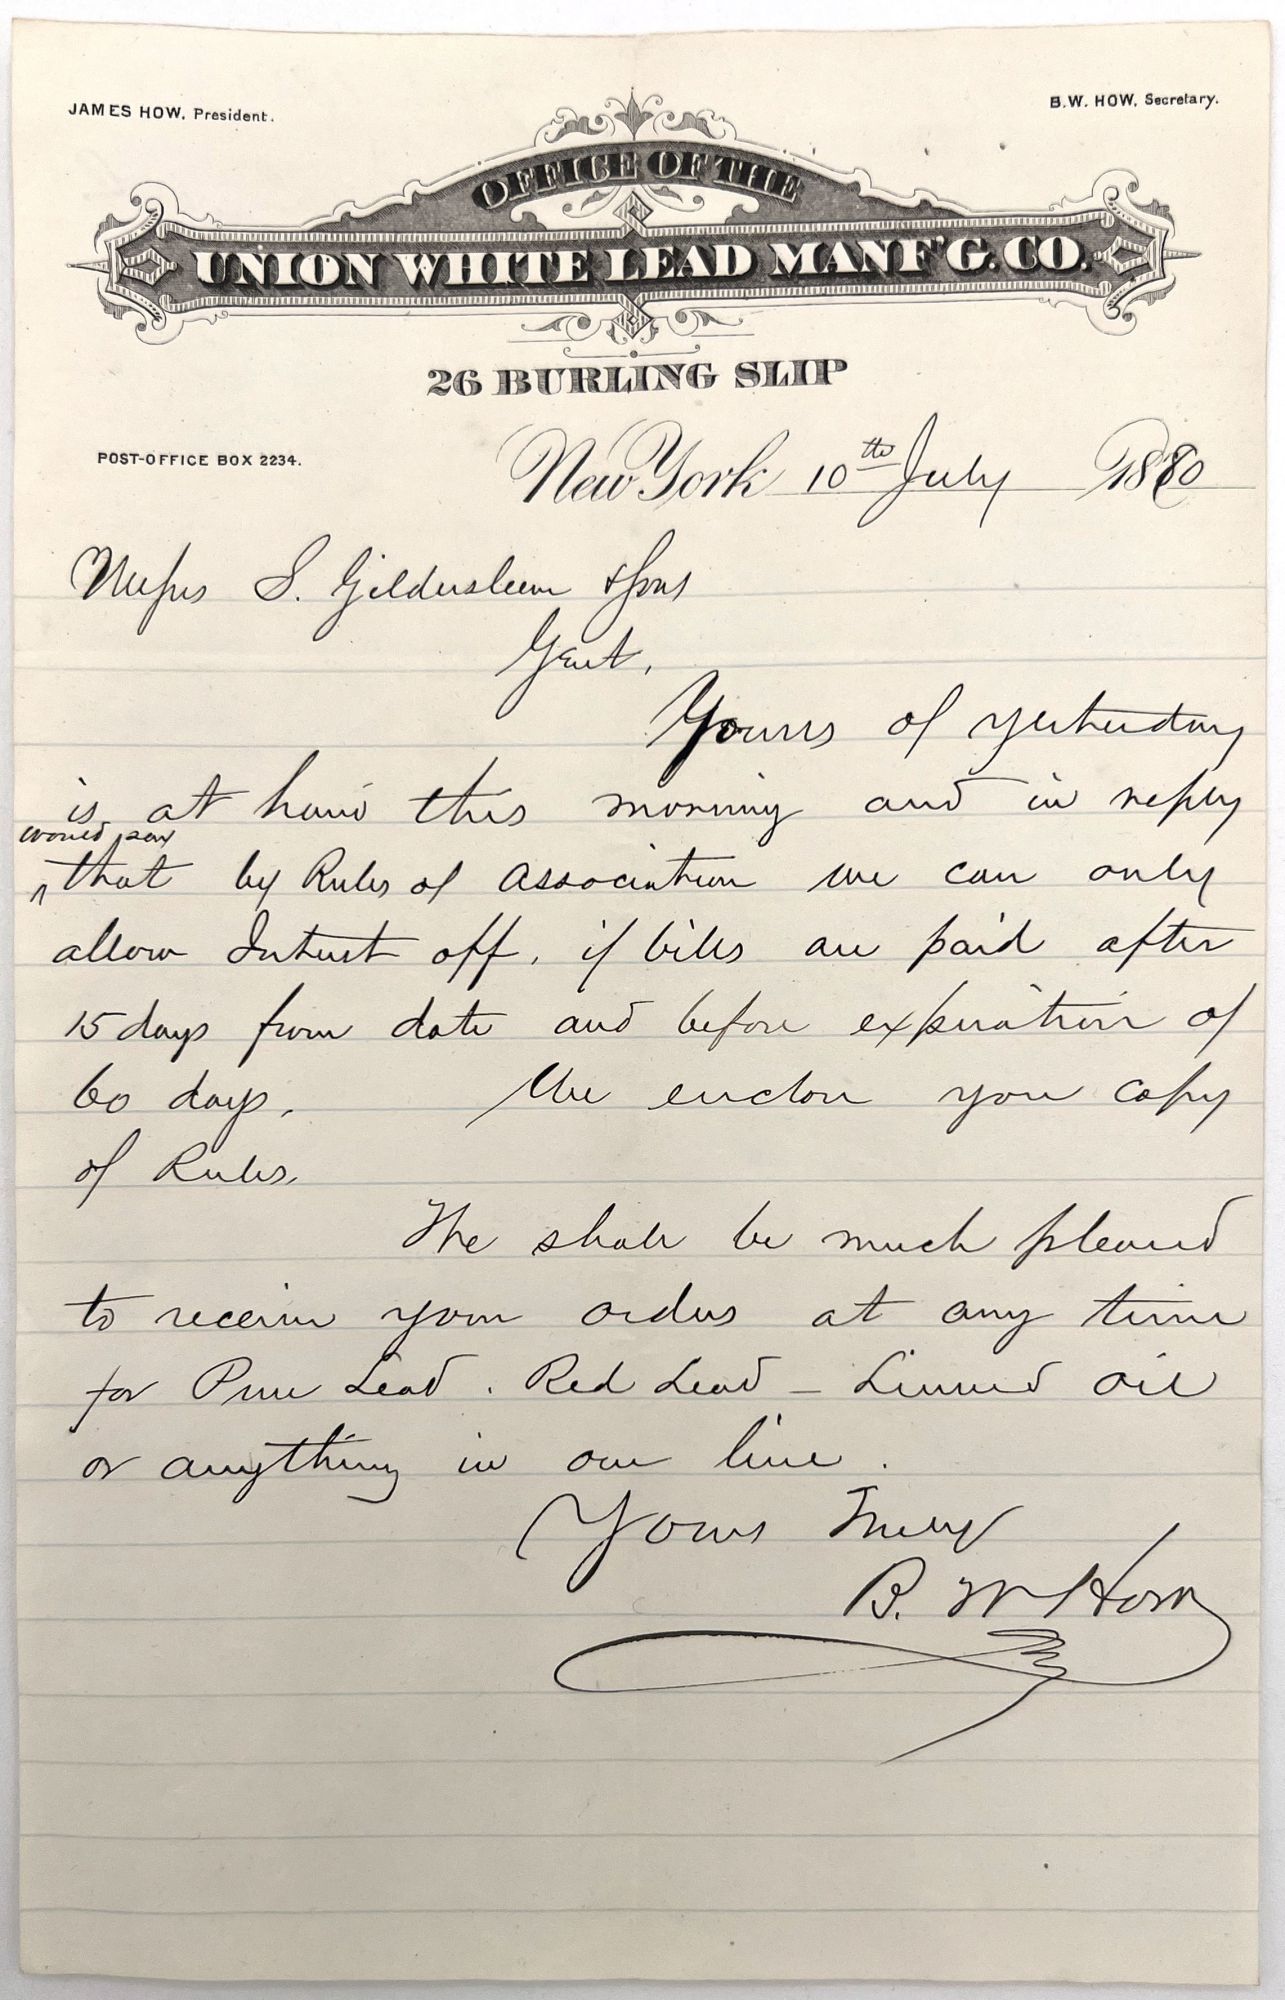 JAMES HOW, President.
B.W. HOW, Secretary.
OFFICE OF THE
UNION WHITE LEAD MANF'G. CO.
26 BURLING SLIP
POST-OFFICE BOX 2234.
New York 10th July 1880
Messrs S. Gildersleeve & Sons
Gent.
Yours of yesterday
is at hand this morning and in reply
would say
^ that by Rules of Association we can only
allow Interest off, if bills are paid after
15 days from date and before expiration of
60 days. We enclose you copy
of Rules.
We shall be much pleased
to receive your orders at any time
for Pure Lead. Red Lead - Linseed Oil
or anything in our line.
Yours Truly
B. W How